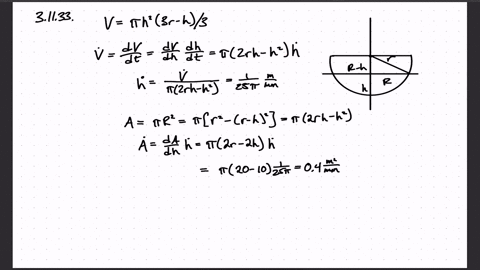 3.11.33. V = πh²(3r-h)/3
V̇ = dV/dt = dV/dh dh/dt = π(2rh-h²)ḣ
ḣ = V̇/π(2rh-h²) = 1/25π m/min
A = πR² = π[r²-(r-h)²] = π(2rh-h²)
Ȧ = dA/dh ḣ = π(2r-2h)ḣ
= π(20-10) 1/25π = 0.4 m²/min
r
R-h
R
h